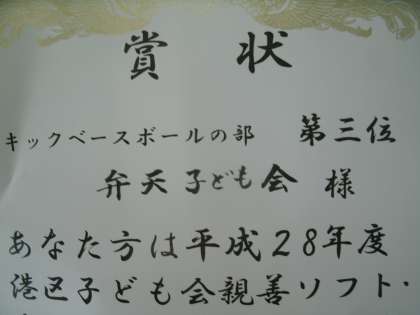 賞状
キックベースボールの部 第三位
弁天子ども会 様
あなた方は平成28年度
港区子ども会親善ソフト・